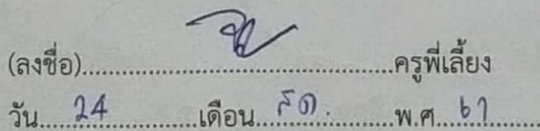 (ลงชื่อ)........................................ครูพี่เลี้ยง
วัน....24............เดือน............พ.ศ....67........